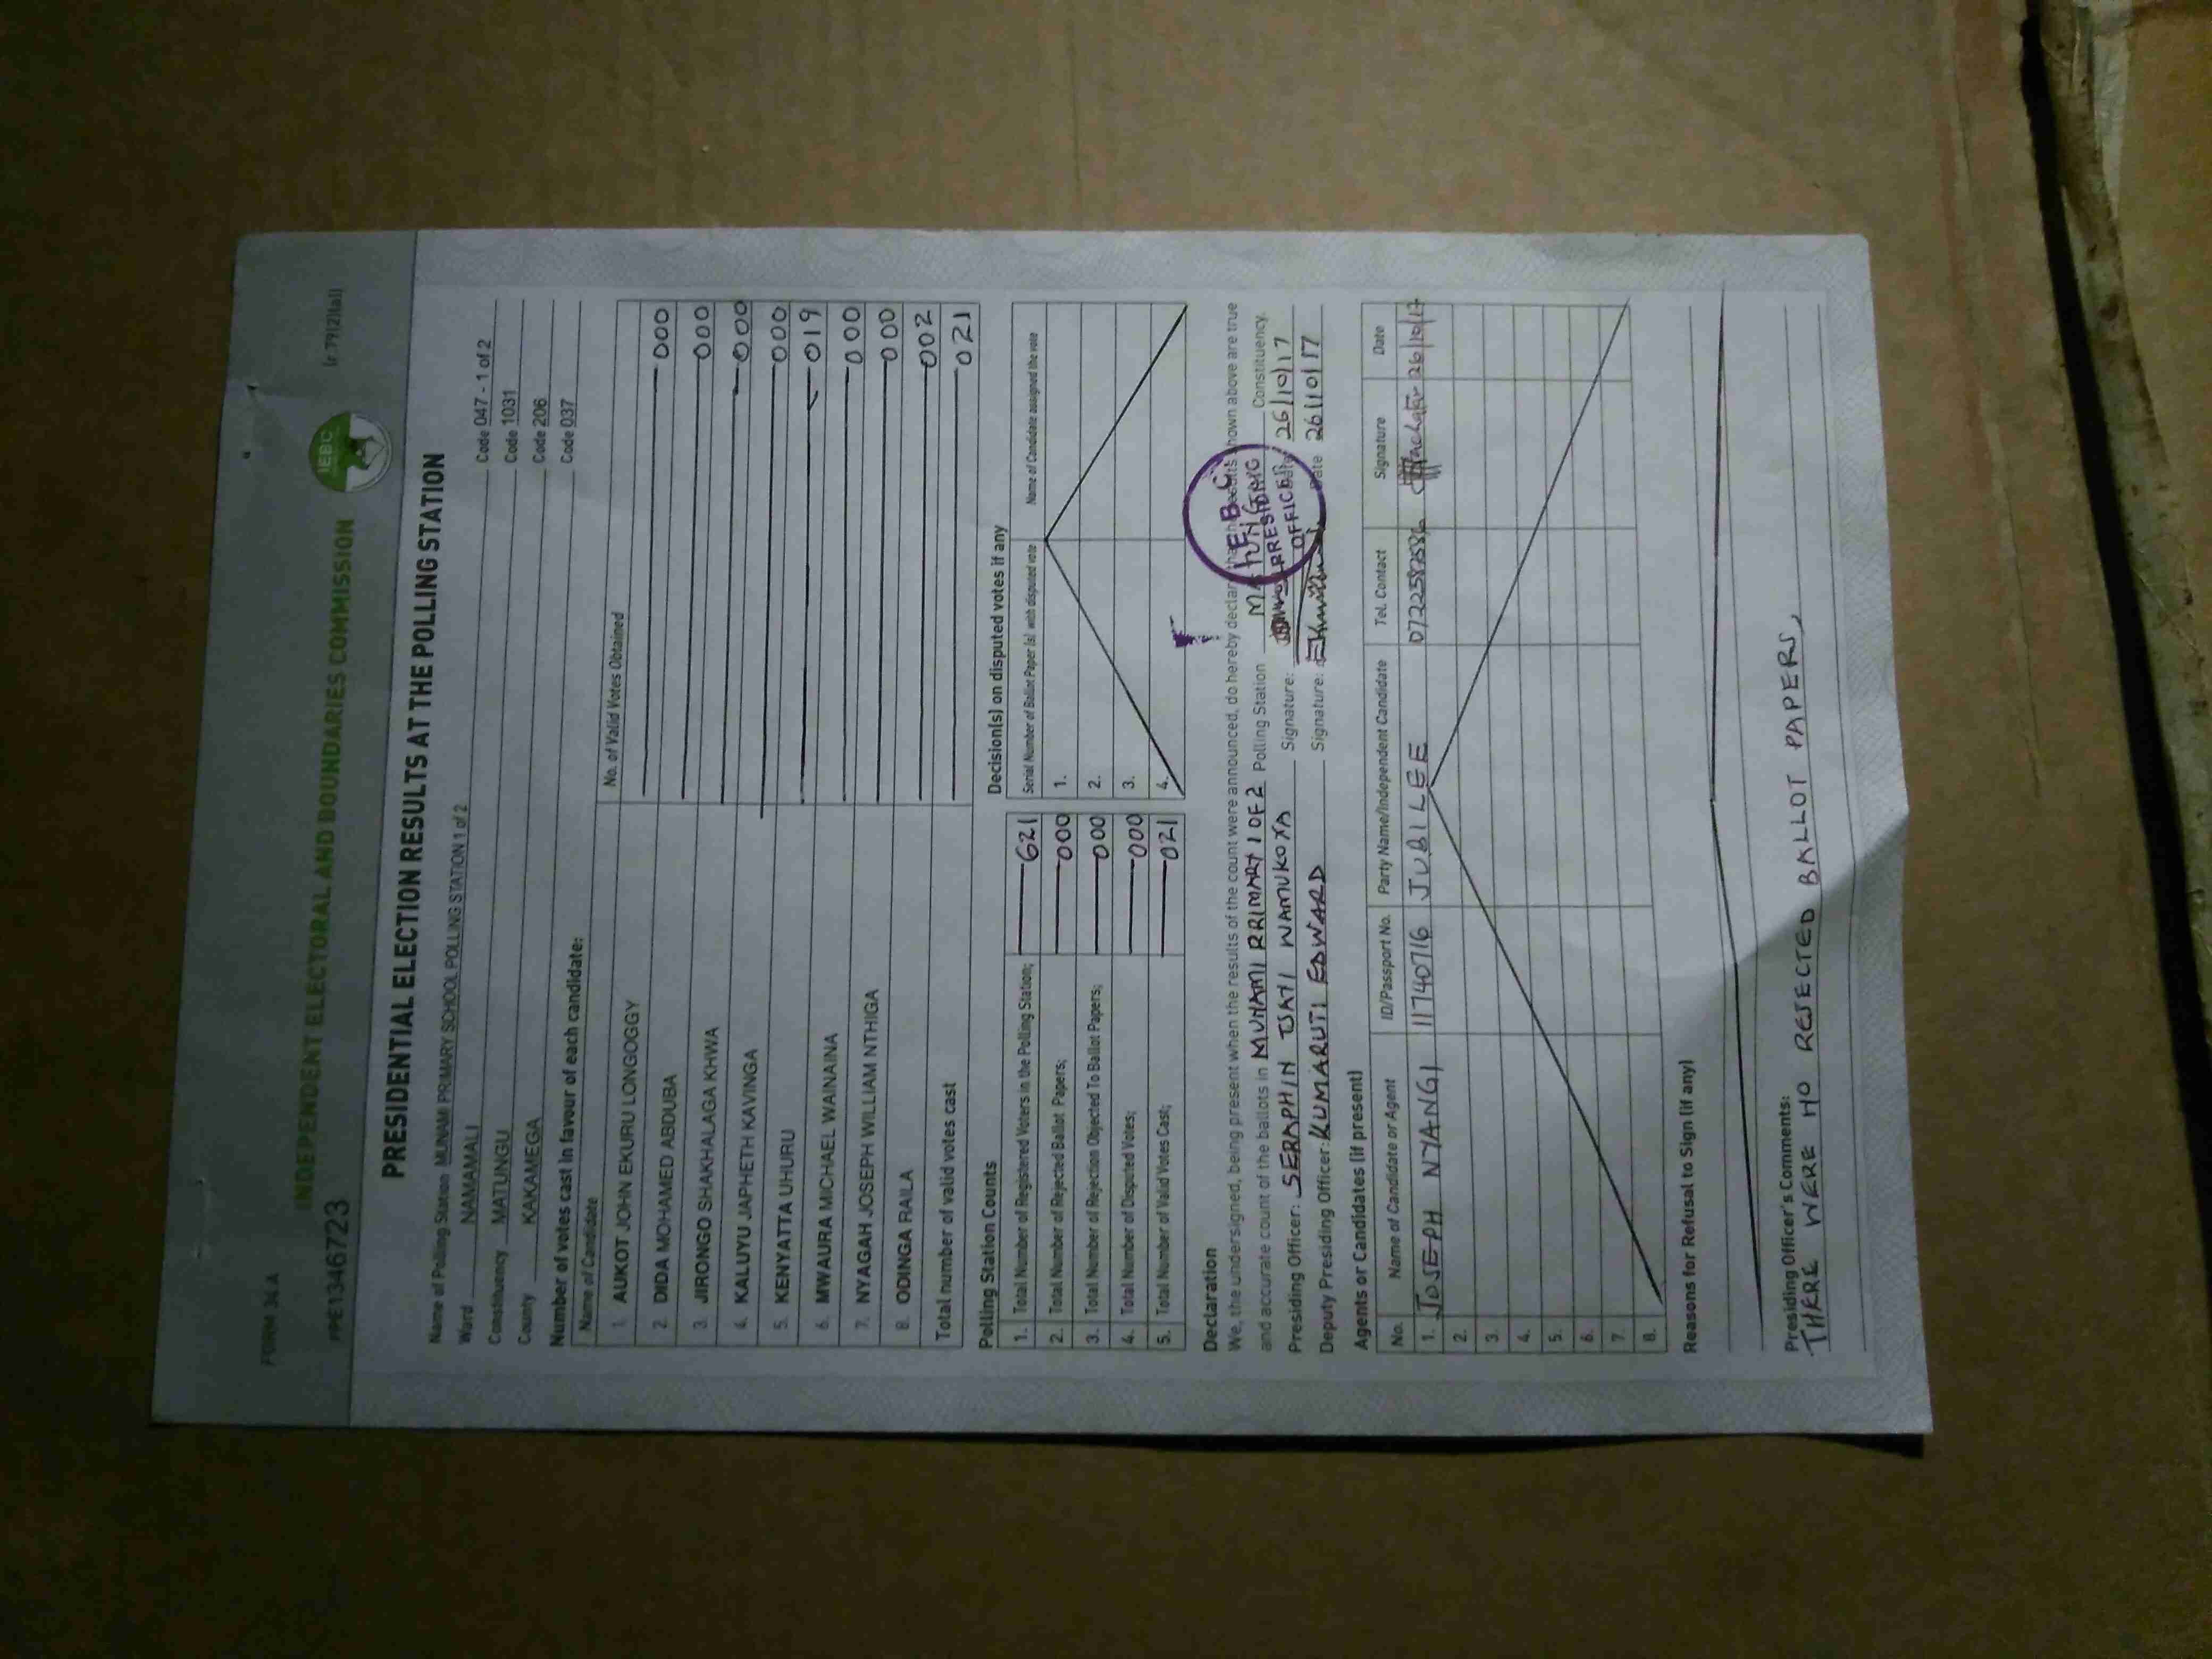 FORM 34A
(r.79(2)(a))
PPE1346723
INDEPENDENT ELECTORAL AND BOUNDARIES COMMISSION
IEBC
PRESIDENTIAL ELECTION RESULTS AT THE POLLING STATION
Name of Polling Station MUNAMI PRIMARY SCHOOL POLLING STATION 1 of 2 Code 047 - 1 of 2
Ward NAMAMALI Code 1031
Constituency MATUNGU Code 206
County KAKAMEGA Code 037
Number of votes cast in favour of each candidate:
Name of Candidate No. of Valid Votes Obtained
1. AUKOT JOHN EKURU LONGOGGY 000
2. DIDA MOHAMED ABDUBA 000
3. JIRONGO SHAKHALAGA KHWA 000
4. KALUYU JAPHETH KAVINGA 000
5. KENYATTA UHURU 019
6. MWAURA MICHAEL WAINAINA 000
7. NYAGAH JOSEPH WILLIAM NTHIGA 000
8. ODINGA RAILA 002
Total number of valid votes cast 021
Polling Station Counts
1. Total Number of Registered Voters in the Polling Station; 621
2. Total Number of Rejected Ballot Papers; 000
3. Total Number of Rejection Objected To Ballot Papers; 000
4. Total Number of Disputed Votes; 000
5. Total Number of Valid Votes Cast; 021
Decision(s) on disputed votes if any
Serial Number of Ballot Paper (s) with disputed vote Name of Candidate assigned the vote
1.
2.
3.
4.
Declaration
We, the undersigned, being present when the results of the count were announced, do hereby declare shown above are true
and accurate count of the ballots in MUNAMI PRIMARY 1 OF 2 Polling Station Constituency.
Presiding Officer: SERAPHIN Signature: 26/10/17
Deputy Presiding Officer: KUMARUTI EDWARD Signature: Date 26/10/17
I E B C
PRESIDING
OFFICER
Agents or Candidates (if present)
No. Name of Candidate or Agent ID/Passport No. Party Name/Independent Candidate Tel. Contact Signature Date
1. JOSEPH NYANGI 11740716 JUBILEE 26/10/17
2.
3.
4.
5.
6.
7.
8.
Reasons for Refusal to Sign (if any)
Presiding Officer's Comments:
THERE WERE NO REJECTED BALLOT PAPERS,